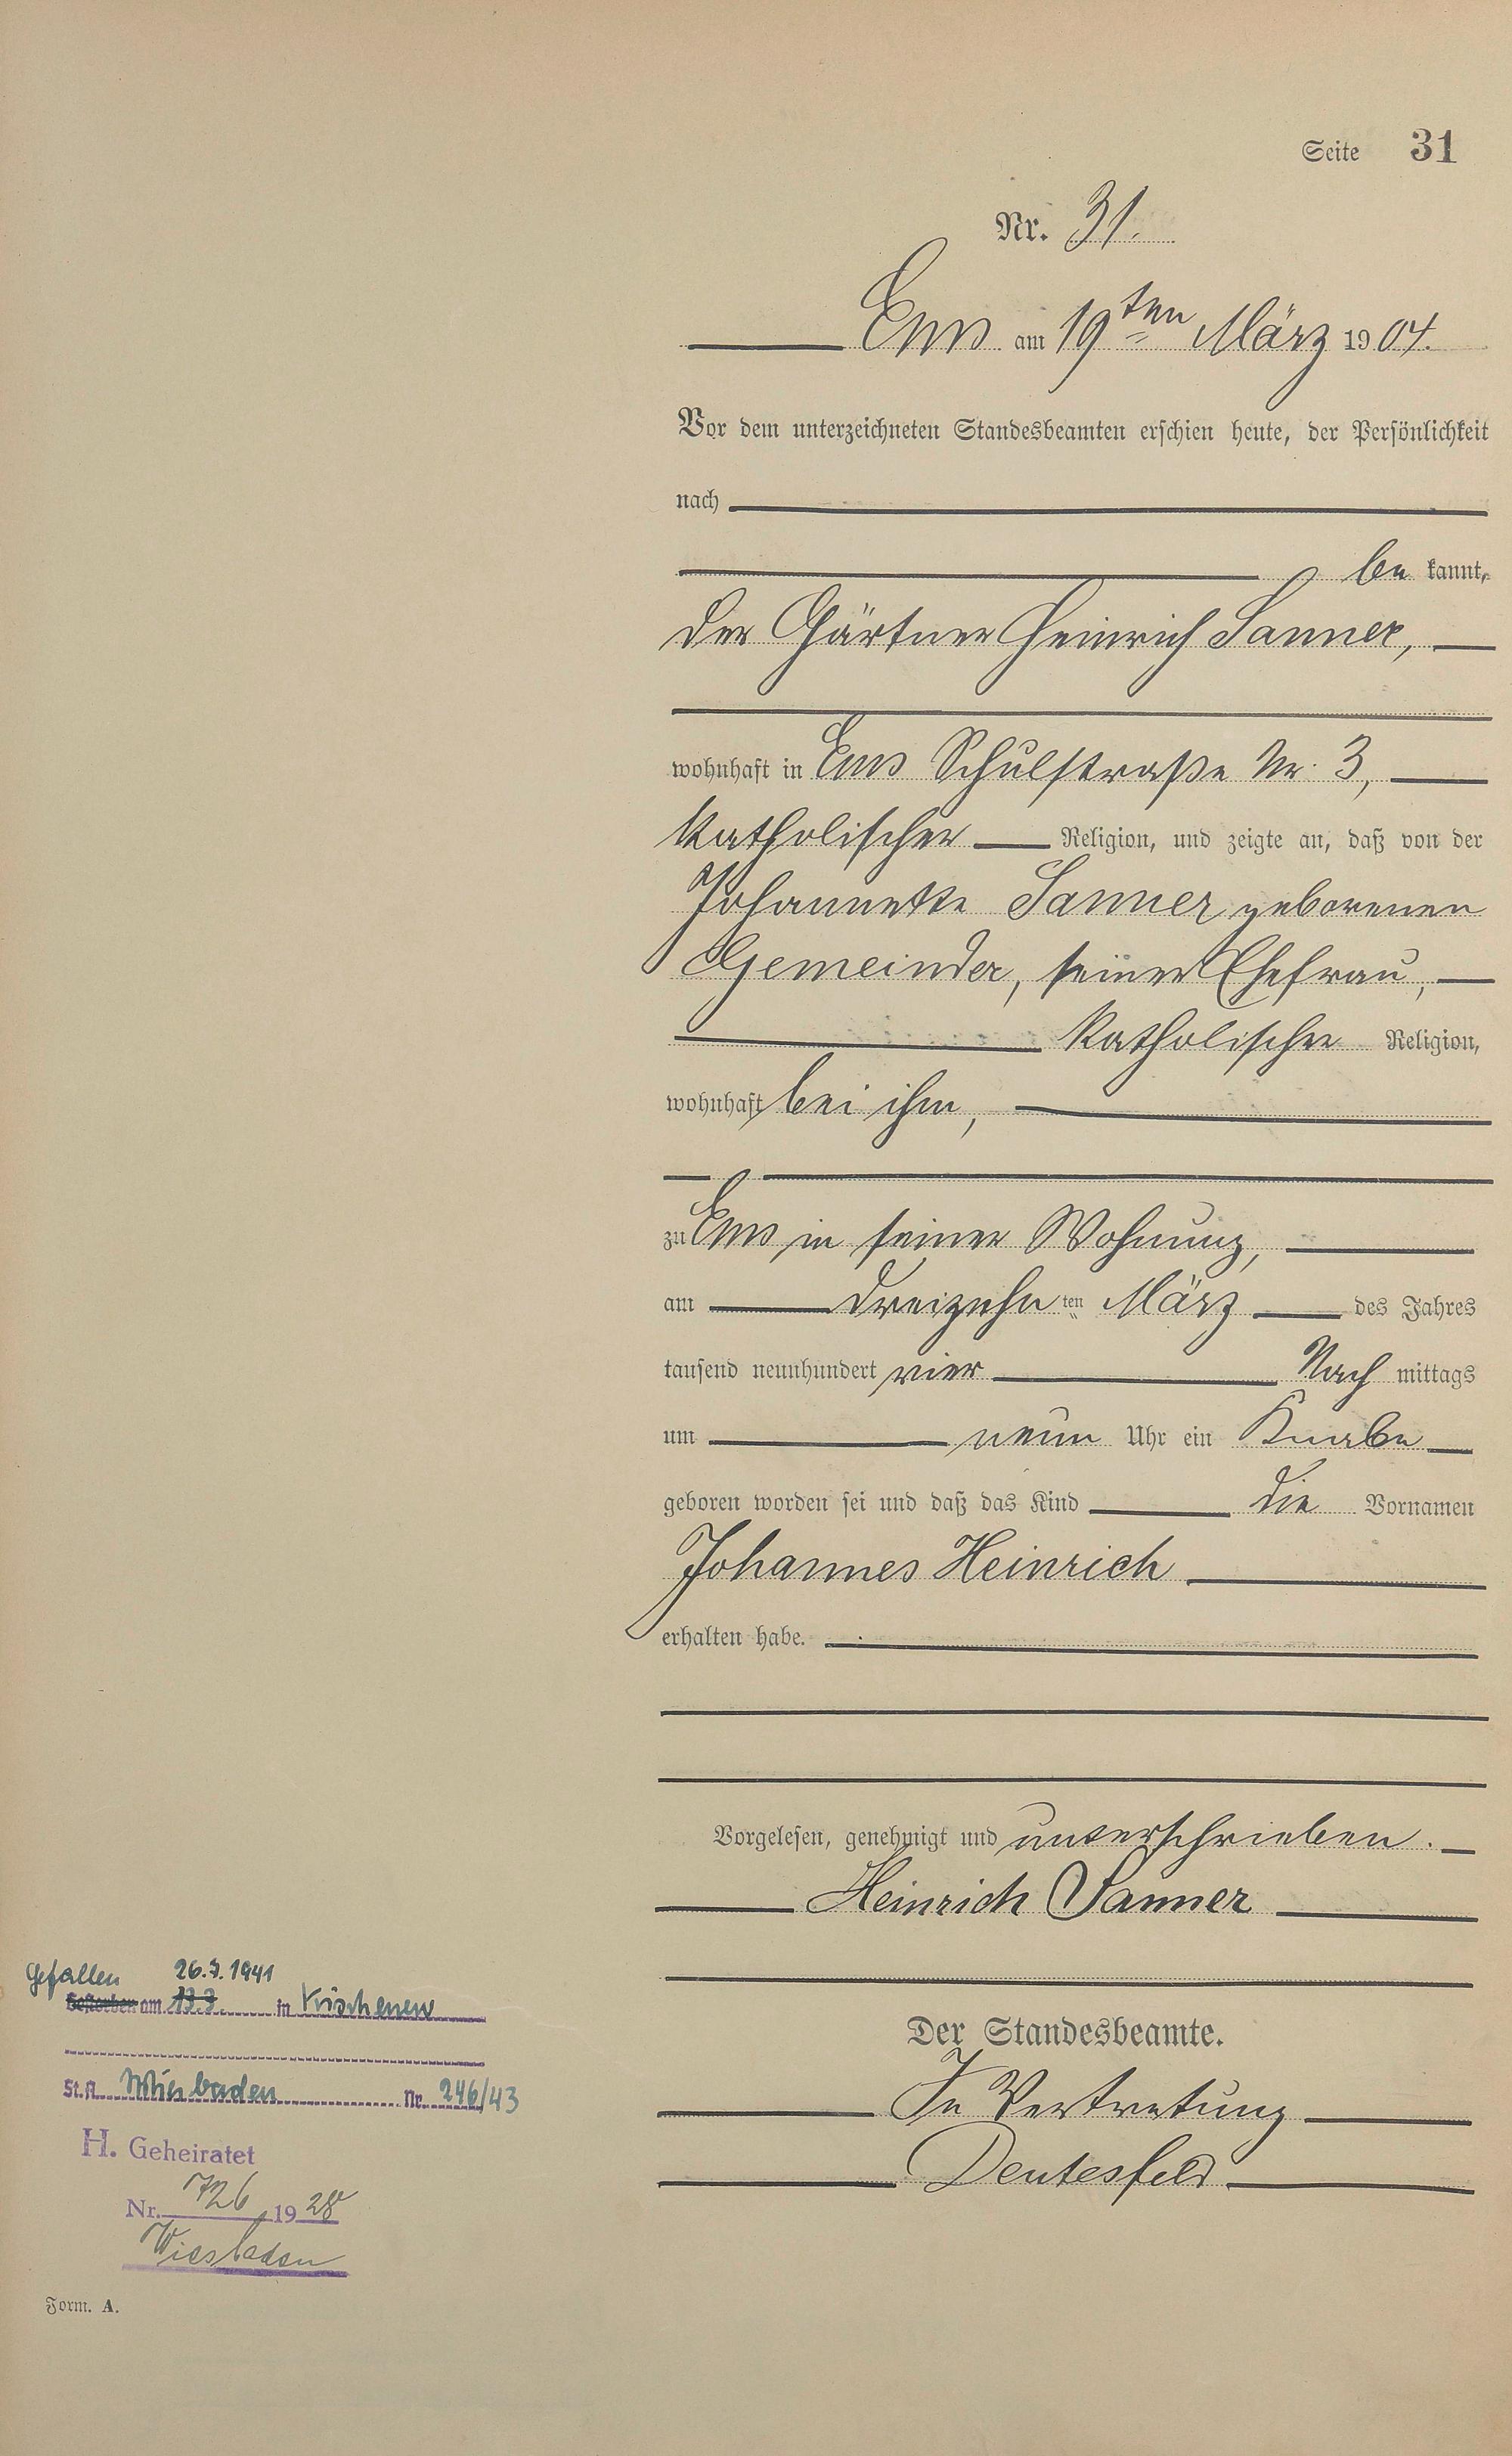 Seite 31
Nr. 31.
Ems am 19ten März 1904.
Vor dem unterzeichneten Standesbeamten erschien heute, der Persönlichkeit
nach
be kannt,
der Gärtner Heinrich Sanner,
wohnhaft in Ems Schulstraße Nr. 3,
katholischer Religion, und zeigte an, daß von der
Johannette Sanner geborenen
Gemeinder, seiner Ehefrau,
katholischer Religion,
wohnhaft bei ihm,
zu Ems in seiner Wohnung,
am dreizehnten März des Jahres
tausend neunhundert vier Nach mittags
um neun Uhr ein Knabe
geboren worden sei und daß das Kind die Vornamen
Johannes Heinrich
erhalten habe.
Vorgelesen, genehmigt und unterschrieben.
Heinrich Sanner
Der Standesbeamte.
In Vertretung
Deutesfeld
Gefallen 26.7.1941
Gestorben am 13.7. in
St.A. Wiesbaden Nr. 246/43
H. Geheiratet
Nr. 726 1928
Wiesbaden
Form. A.